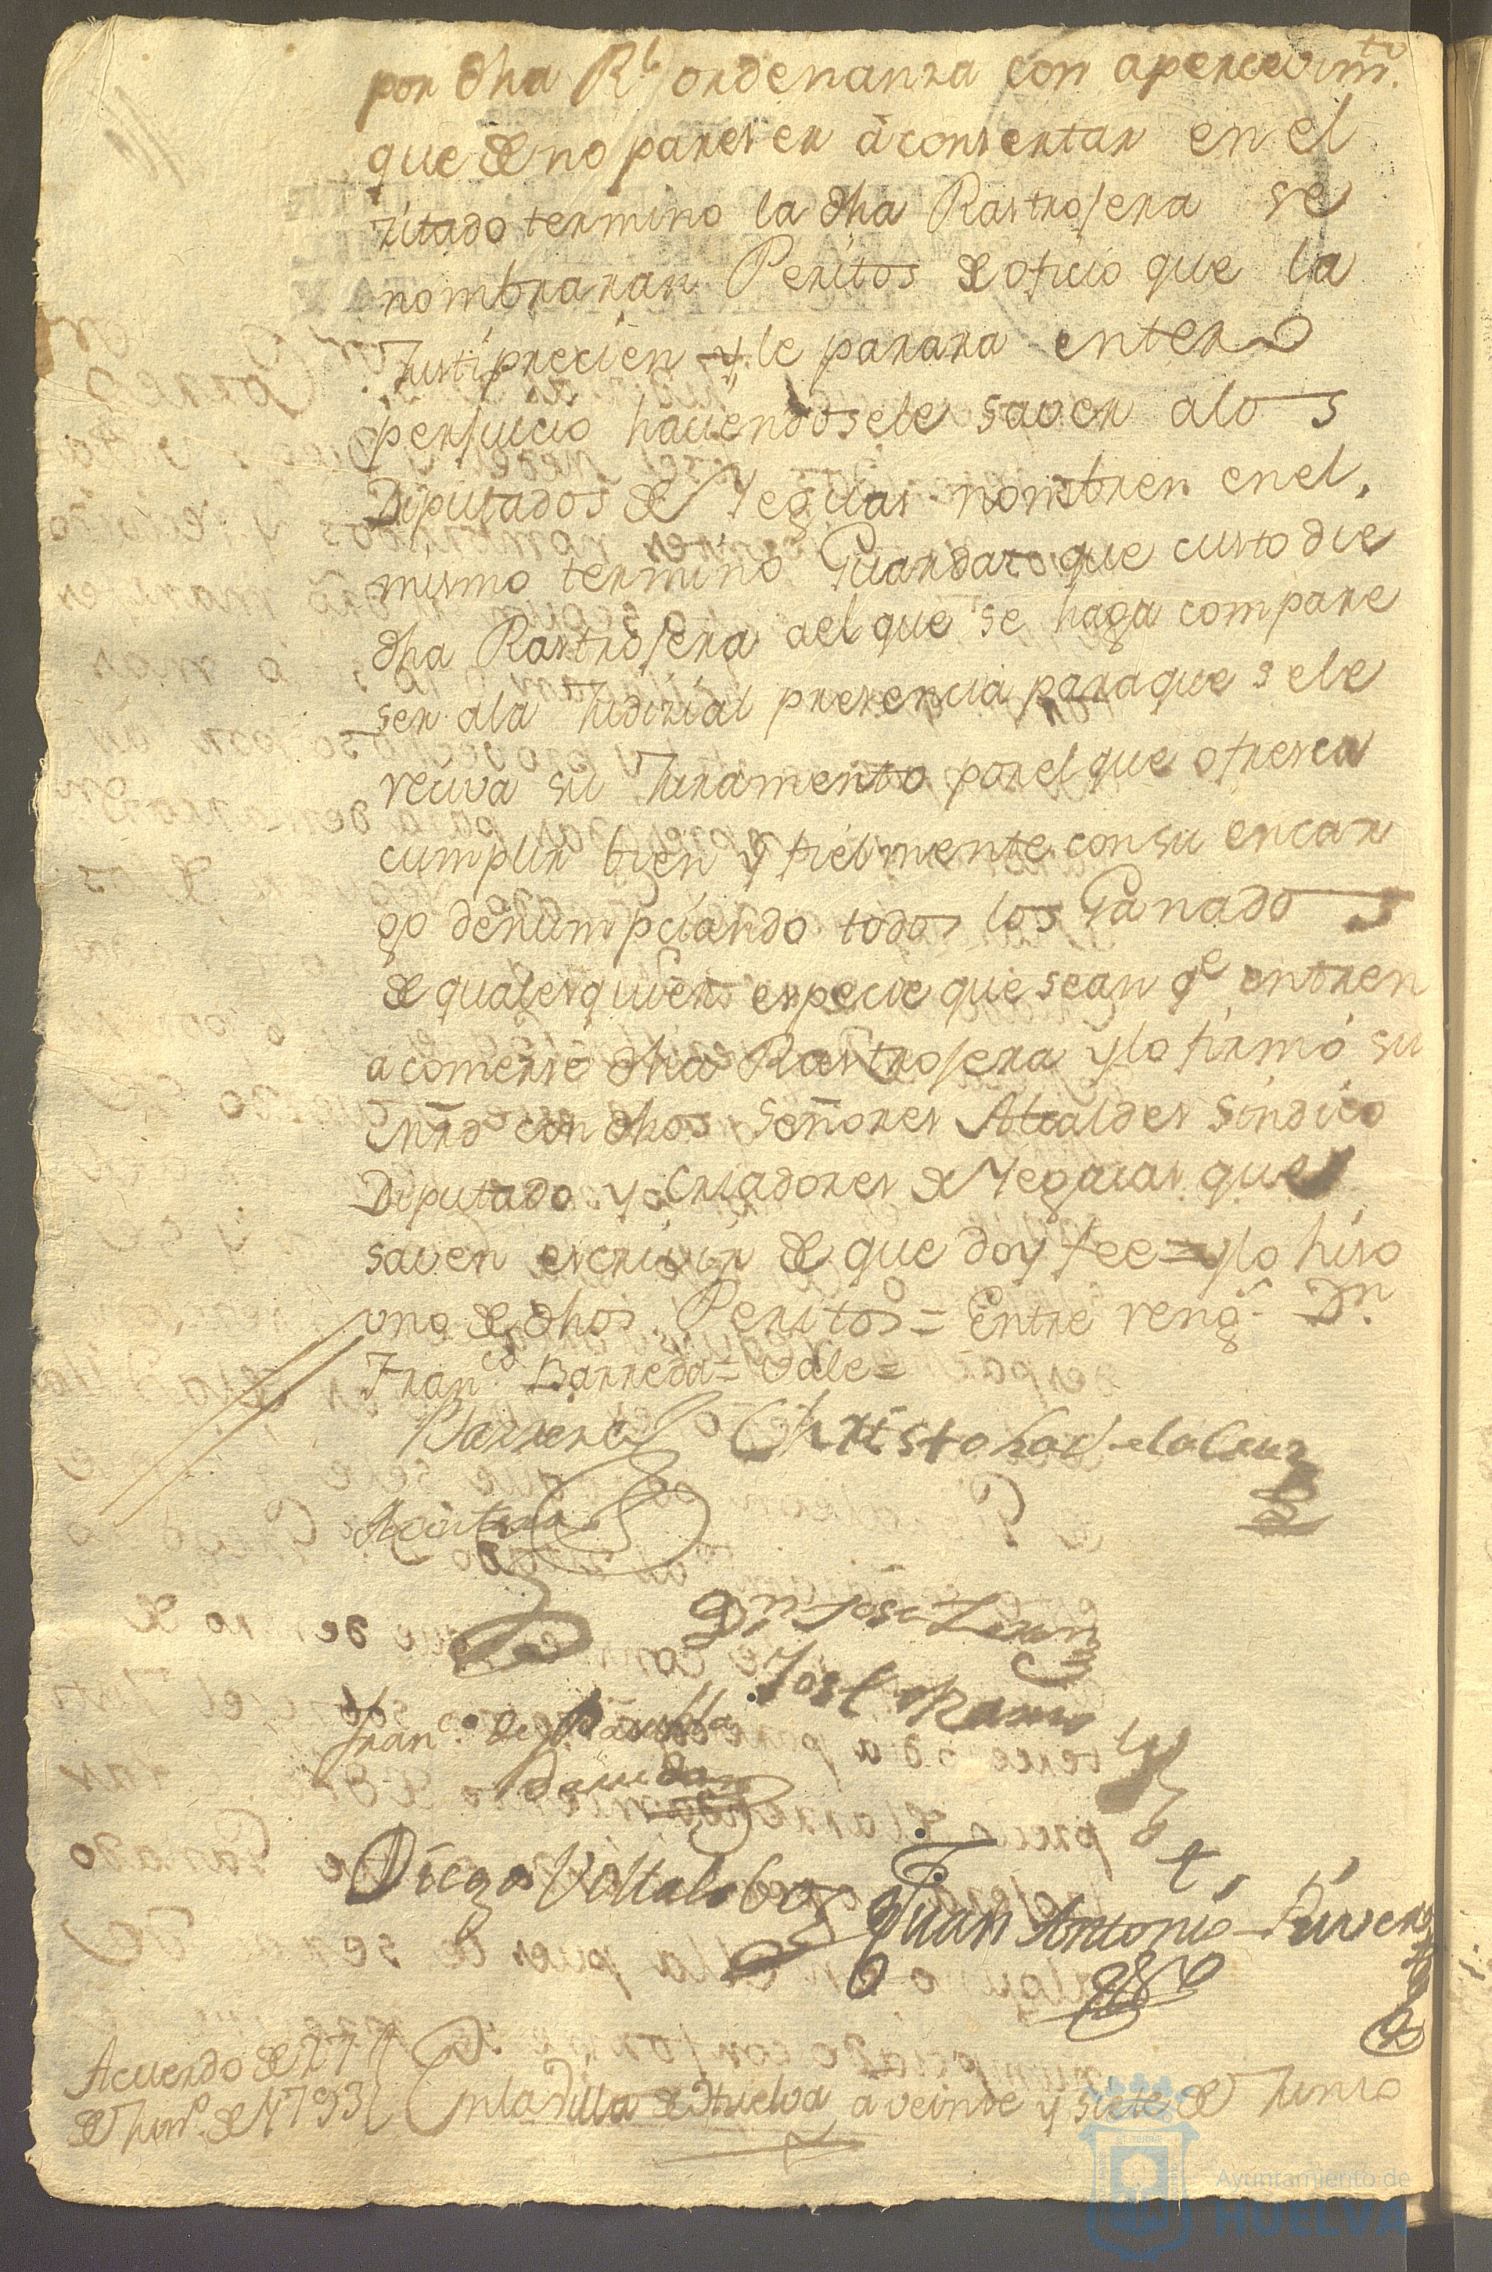 por dha Rl ordenanza con apercevimto.
que de no pareser à consertar en el
zitado termino la dha Rastrojera se
nombraran Peritos de oficio que la
Justiprecien y le parara entero
perjuicio haciendosele saver a los
Diputados de Yeguas nombren en el
mismo termino Guarda que custodie
dha Rastrojera ael que se haga compare
ser ala Judizial presencia para que sele
reciva su Juramento por el que ofresca
cumplir bien y fielmente con su encar
go denumpciando todos los Ganados
de qualesquiera especie que sean qe entren
a comerse dha Rastrojera y lo firmó su
mrd con dhos Señores Alcaldes Sindico
Diputado y Criadores de Yeguas que
saven escrivir de que doy fee = y lo hiso
uno de dhos Peritos = Entre reng.s Dn.
Franco Barreda = vale =
Barrera Christobal de la Cruz
Dn Jose
Jose Ramo
Franco. de Paula
Diego Villalobos
Juan Antonio Rivera
Acuerdo de 27
de Juno. de 1793
En la Villa de Huelva a veinte y siete de Junio
Ayuntamiento de
HUELVA